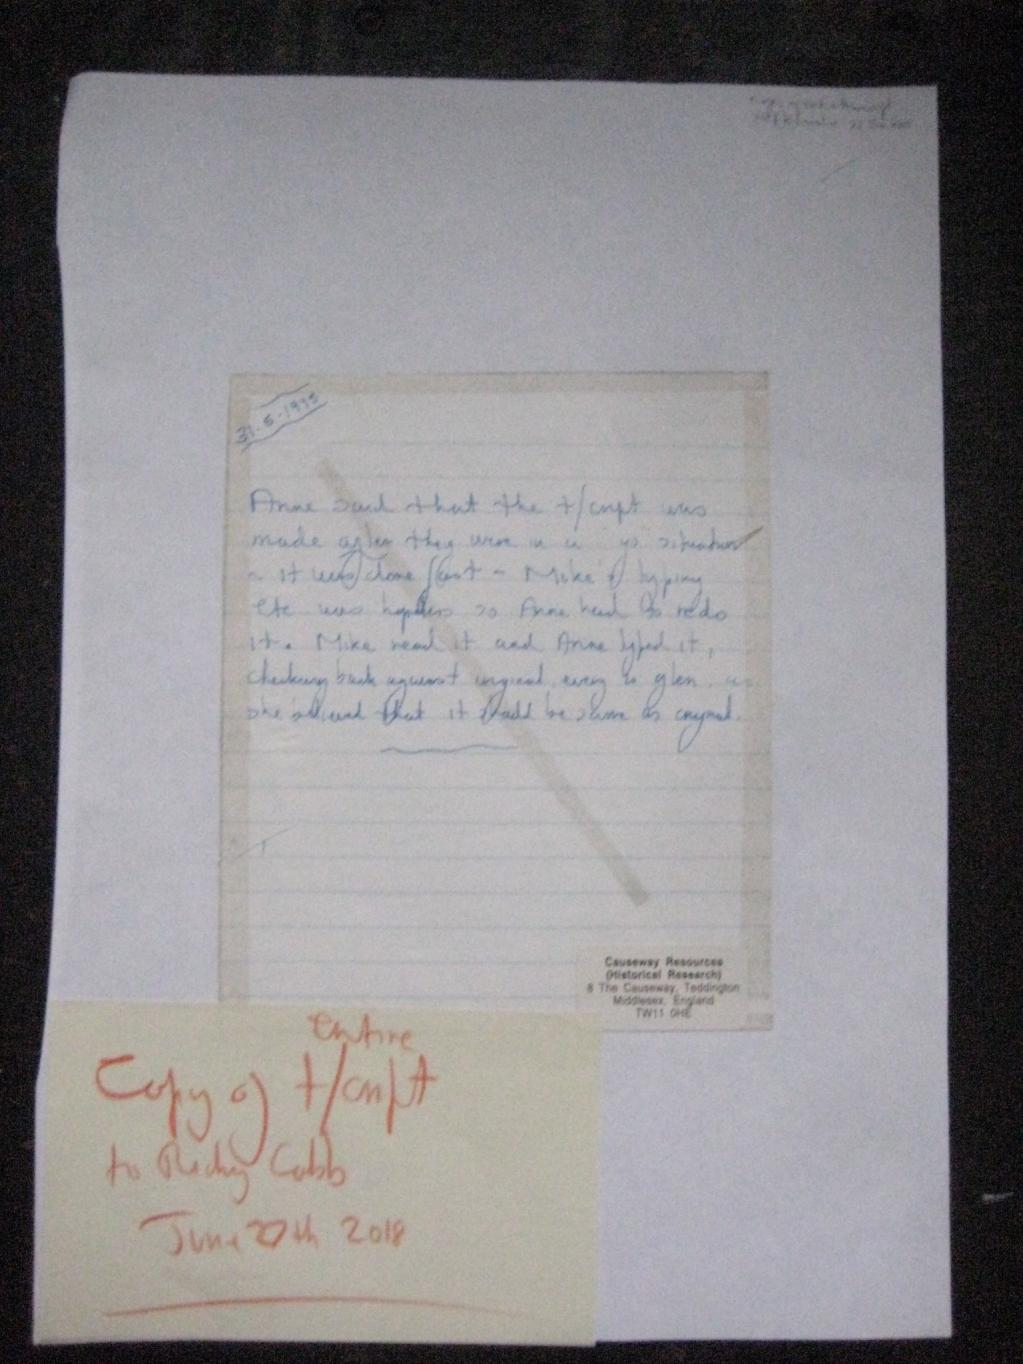 31.5.1995
Anne said that the t/cript was
made after they were in a situation
it was done fast – Mike's typing
etc was hopeless so Anne had to redo
it. Mike read it and Anne typed it,
checking back against original, every so often, as
she believed that it should be same as original.
Causeway Resources
(Historical Research)
8 The Causeway, Teddington
Middlesex, England
TW11 0HE
entire
Copy of t/cript
to Cobb
June 20th 2018